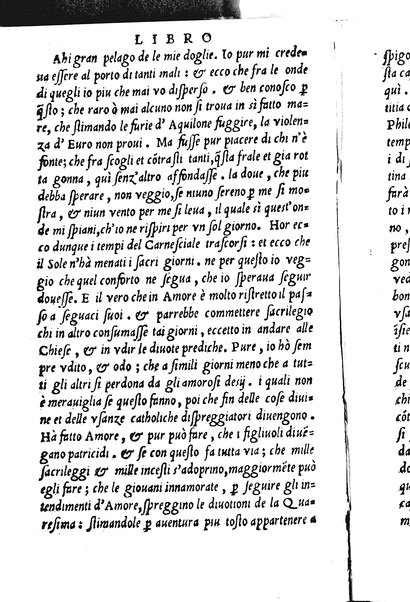 LIBRO
Ahi gran pelago de le mie doglie. Io pur mi crede-
ua essere al porto di tanti mali: & ecco che fra le onde
di quegli io piu che mai vo disperso. & ben conosco ꝑ
q̃sto; che raro ò mai alcuno non si troua in sì fatto ma-
re, che stimando le furie d'Aquilone fuggire, la violen-
za d'Euro non proui. Ma fusse pur piacere di chi n'è
fonte; che fra scogli et cõtrasti tanti, q̃sta frale et gia rot
ta gonna, quì senz'altro affondasse. la doue, che piu
debba sperare, non veggio, se niuno sereno ꝑ me si mo-
stra, & niun vento per me si leua, il quale sì quest'on-
de mi spiani, ch'io ne rispiri per vn sol giorno. Hor ec-
co dunque i tempi del Carnesciale trascorsi: et ecco che
il Sole n'hà menati i sacri giorni. ne per questo io veg-
gio che quel conforto ne segua, che io speraua seguir
douesse. E il vero che in Amore è molto ristretto il pas-
so a seguaci suoi. & parrebbe commettere sacrilegio
chi in altro consumasse tai giorni, eccetto in andare alle
Chiese, & in vdir le diuote prediche. Pure, io hò sem
pre vdito, & odo; che a simili giorni meno che a tut-
ti gli altri si perdona da gli amorosi desij. i quali non
è merauiglia se questo fanno, poi che fin delle cose diui-
ne et delle vsanze catholiche dispreggiatori diuengono.
Hà fatto Amore, & pur può fare, che i figliuoli diuẽ-
gano patricidi. & se con questo fa tutta via; che mille
sacrileggi & mille incesti s'adoprino, maggiormẽte può
egli fare; che le giouani innamorate, ꝑ seguire gli in-
tendimenti d'Amore, spreggino le diuotioni de la Qua-
resima: stimandole ꝑ auentura piu tosto appartenere a